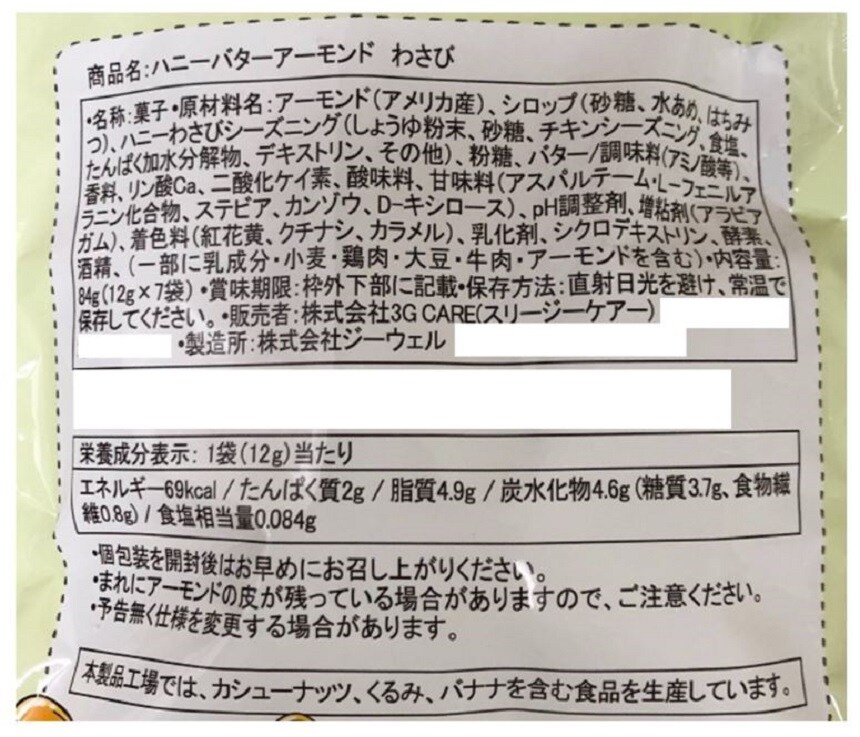 商品名:ハニーバターアーモンド わさび
・名称:菓子・原材料名:アーモンド(アメリカ産)、シロップ(砂糖、水あめ、はちみ
つ)、ハニーわさびシーズニング(しょうゆ粉末、砂糖、チキンシーズニング、食塩、
たんぱく加水分解物、デキストリン、その他)、粉糖、バター/調味料(アミノ酸等)、
香料、リン酸Ca、二酸化ケイ素、酸味料、甘味料(アスパルテーム・L-フェニルア
ラニン化合物、ステビア、カンゾウ、D-キシロース)、pH調整剤、増粘剤(アラビア
ガム)、着色料(紅花黄、クチナシ、カラメル)、乳化剤、シクロデキストリン、酵素、
酒精、(一部に乳成分・小麦・鶏肉・大豆・牛肉・アーモンドを含む)・内容量:
84g(12g×7袋)・賞味期限:枠外下部に記載・保存方法:直射日光を避け、常温で
保存してください。・販売者:株式会社3G CARE(スリージーケアー)
・製造所:株式会社ジーウェル
栄養成分表示: 1袋(12g)当たり
エネルギー69kcal / たんぱく質2g / 脂質4.9g / 炭水化物4.6g (糖質3.7g、食物繊
維0.8g) / 食塩相当量0.084g
・個包装を開封後はお早めにお召し上がりください。
・まれにアーモンドの皮が残っている場合がありますので、ご注意ください。
・予告無く仕様を変更する場合があります。
本製品工場では、カシューナッツ、くるみ、バナナを含む食品を生産しています。